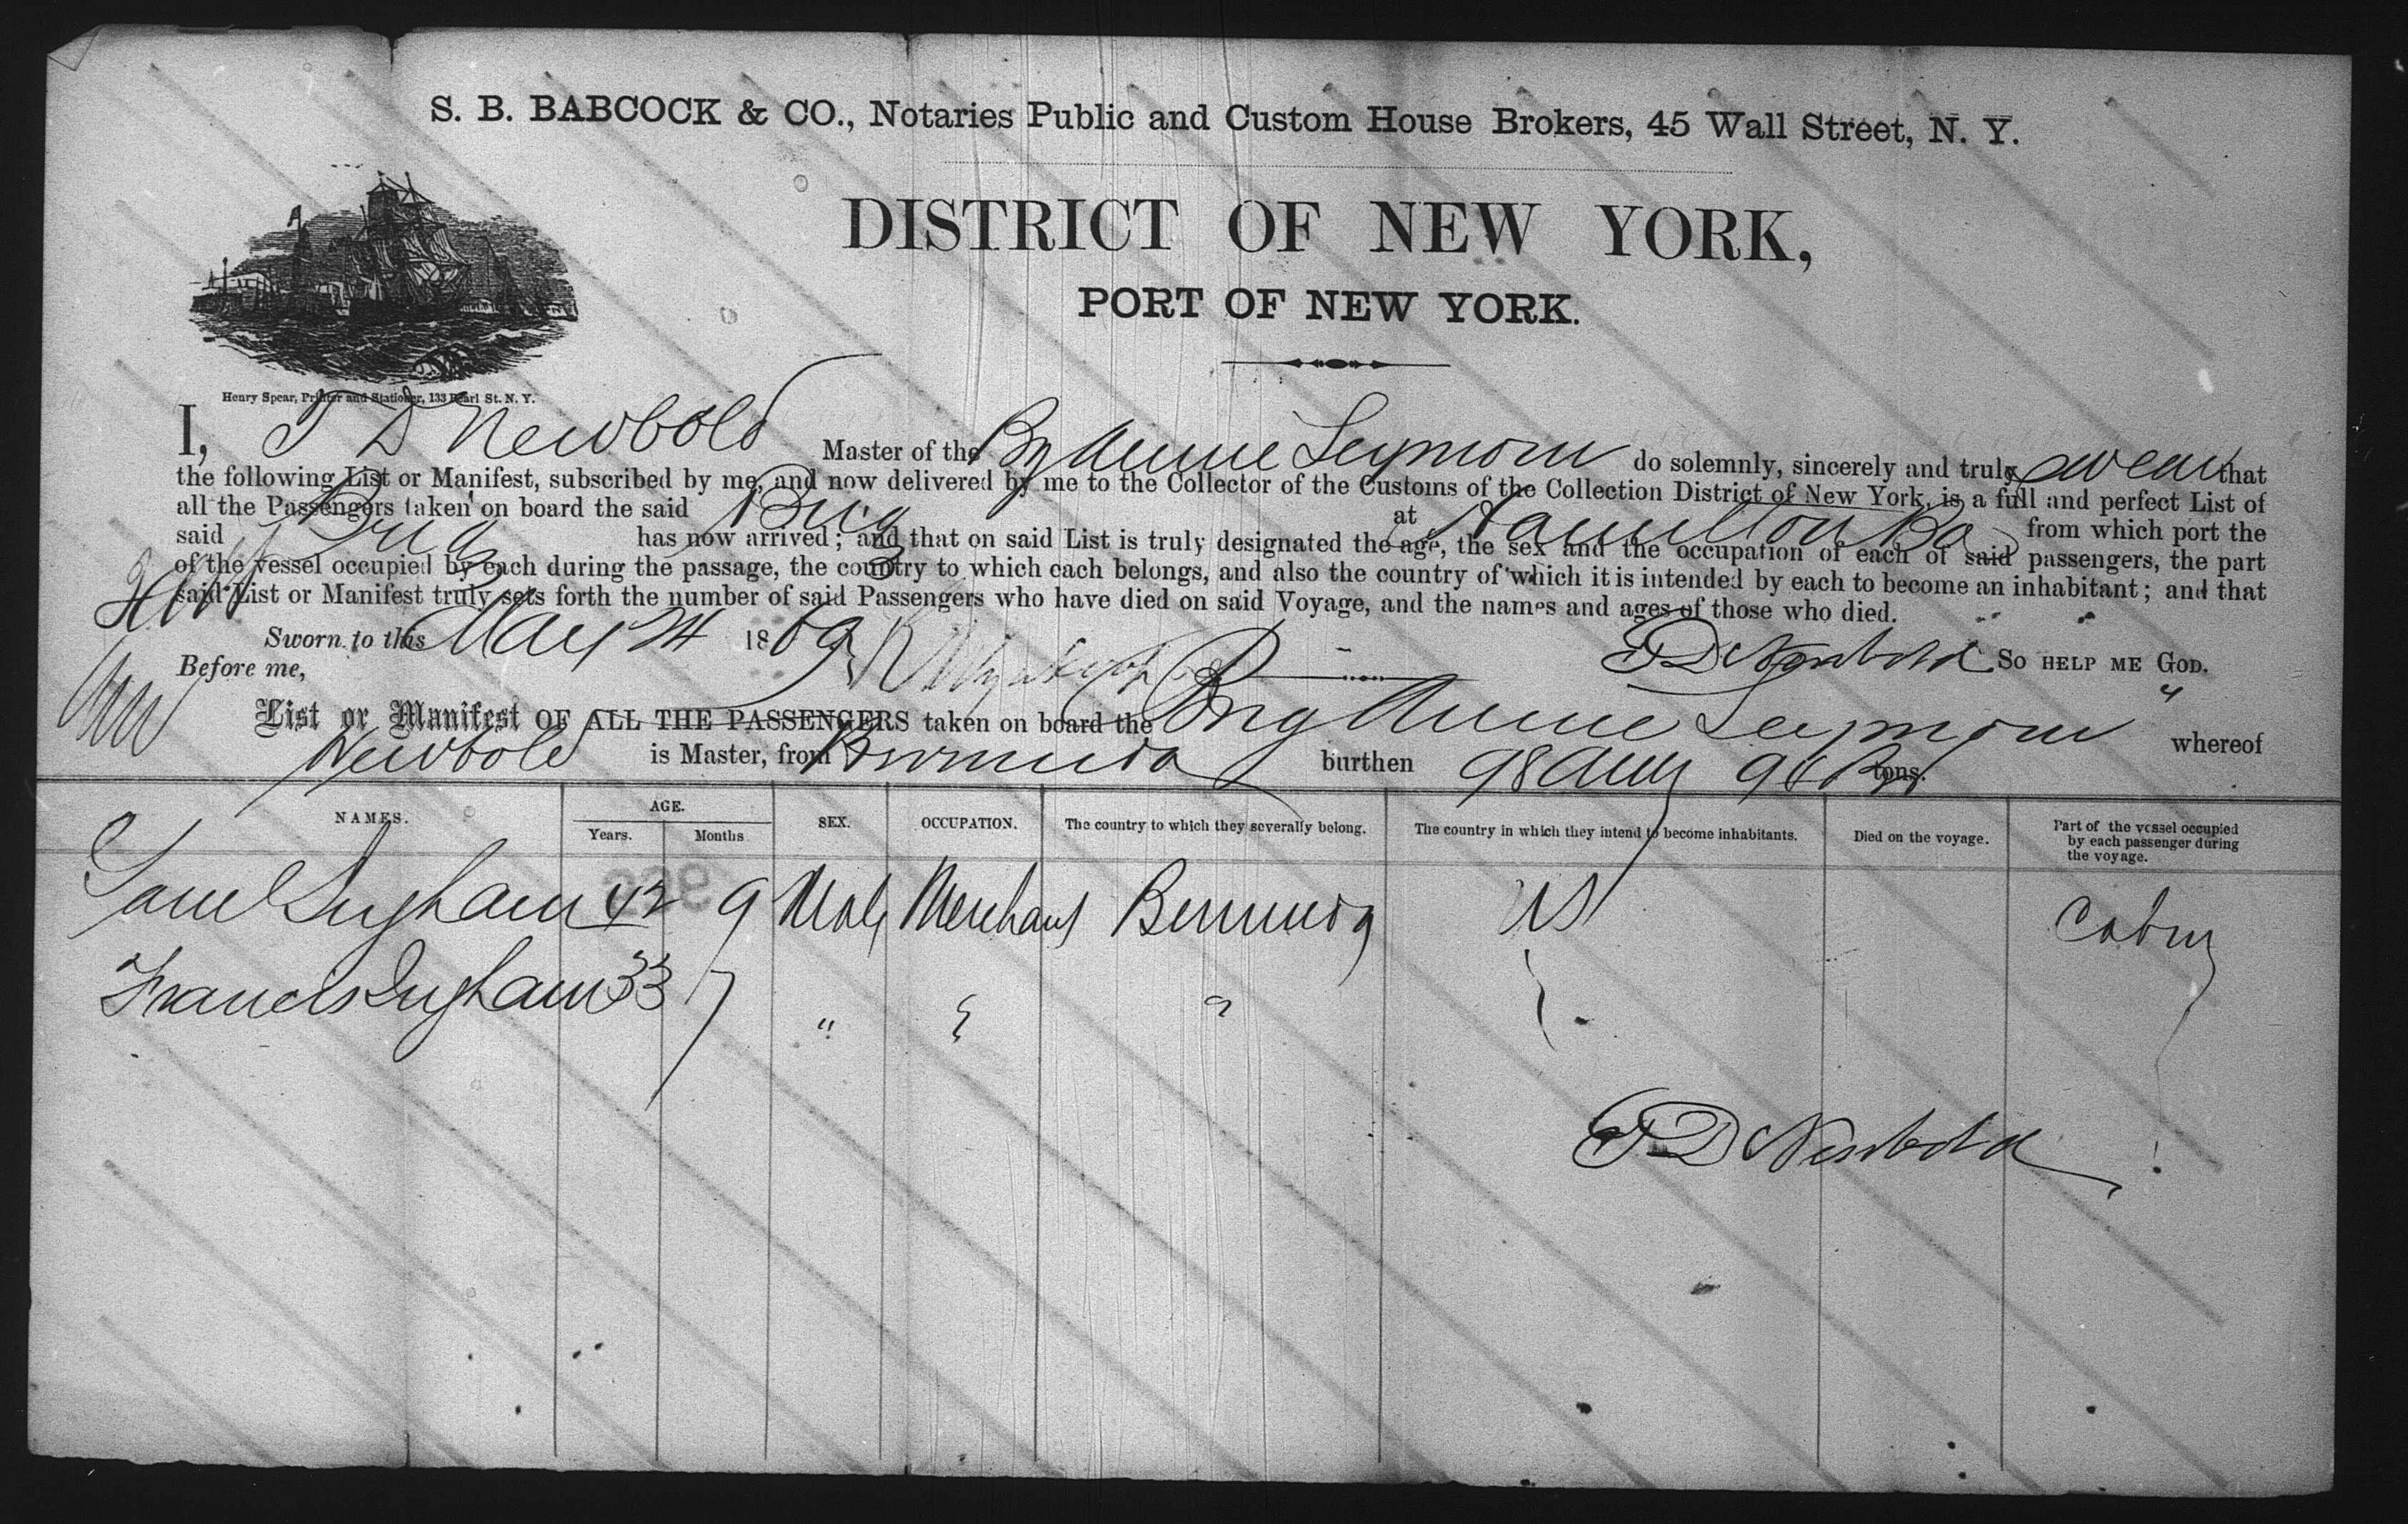 S. B. BABCOCK & CO., Notaries Public and Custom House Brokers, 45 Wall Street, N. Y.
DISTRICT OF NEW YORK,
PORT OF NEW YORK.
Henry Spear, Printer and Stationer, 133 Pearl St. N. Y.
I, T D Newbold Master of the Bg Annie Seymour do solemnly, sincerely and truly swear that
the following List or Manifest, subscribed by me, and now delivered by me to the Collector of the Customs of the Collection District of New York, is a full and perfect List of
all the Passengers taken on board the said Brig at Hamilton Ba from which port the
said Brig has now arrived; and that on said List is truly designated the age, the sex and the occupation of each of said passengers, the part
of the vessel occupied by each during the passage, the country to which each belongs, and also the country of which it is intended by each to become an inhabitant; and that
said List or Manifest truly sets forth the number of said Passengers who have died on said Voyage, and the names and ages of those who died.
Sworn to this May 24 1869 T D Newbold SO HELP ME GOD.
Before me,
List or Manifest OF ALL THE PASSENGERS taken on board the Brig Annie Seymour whereof
Newbold is Master, from Bermuda burthen 98 tons.
NAMES. AGE. Years. Months SEX. OCCUPATION. The country to which they severally belong. The country in which they intend to become inhabitants. Died on the voyage. Part of the vessel occupied by each passenger during the voyage.
Saml Ingham 42 9 Male Merchant Bermuda US Cabin
Francis Ingham 33 7 " " "
T D Newbold